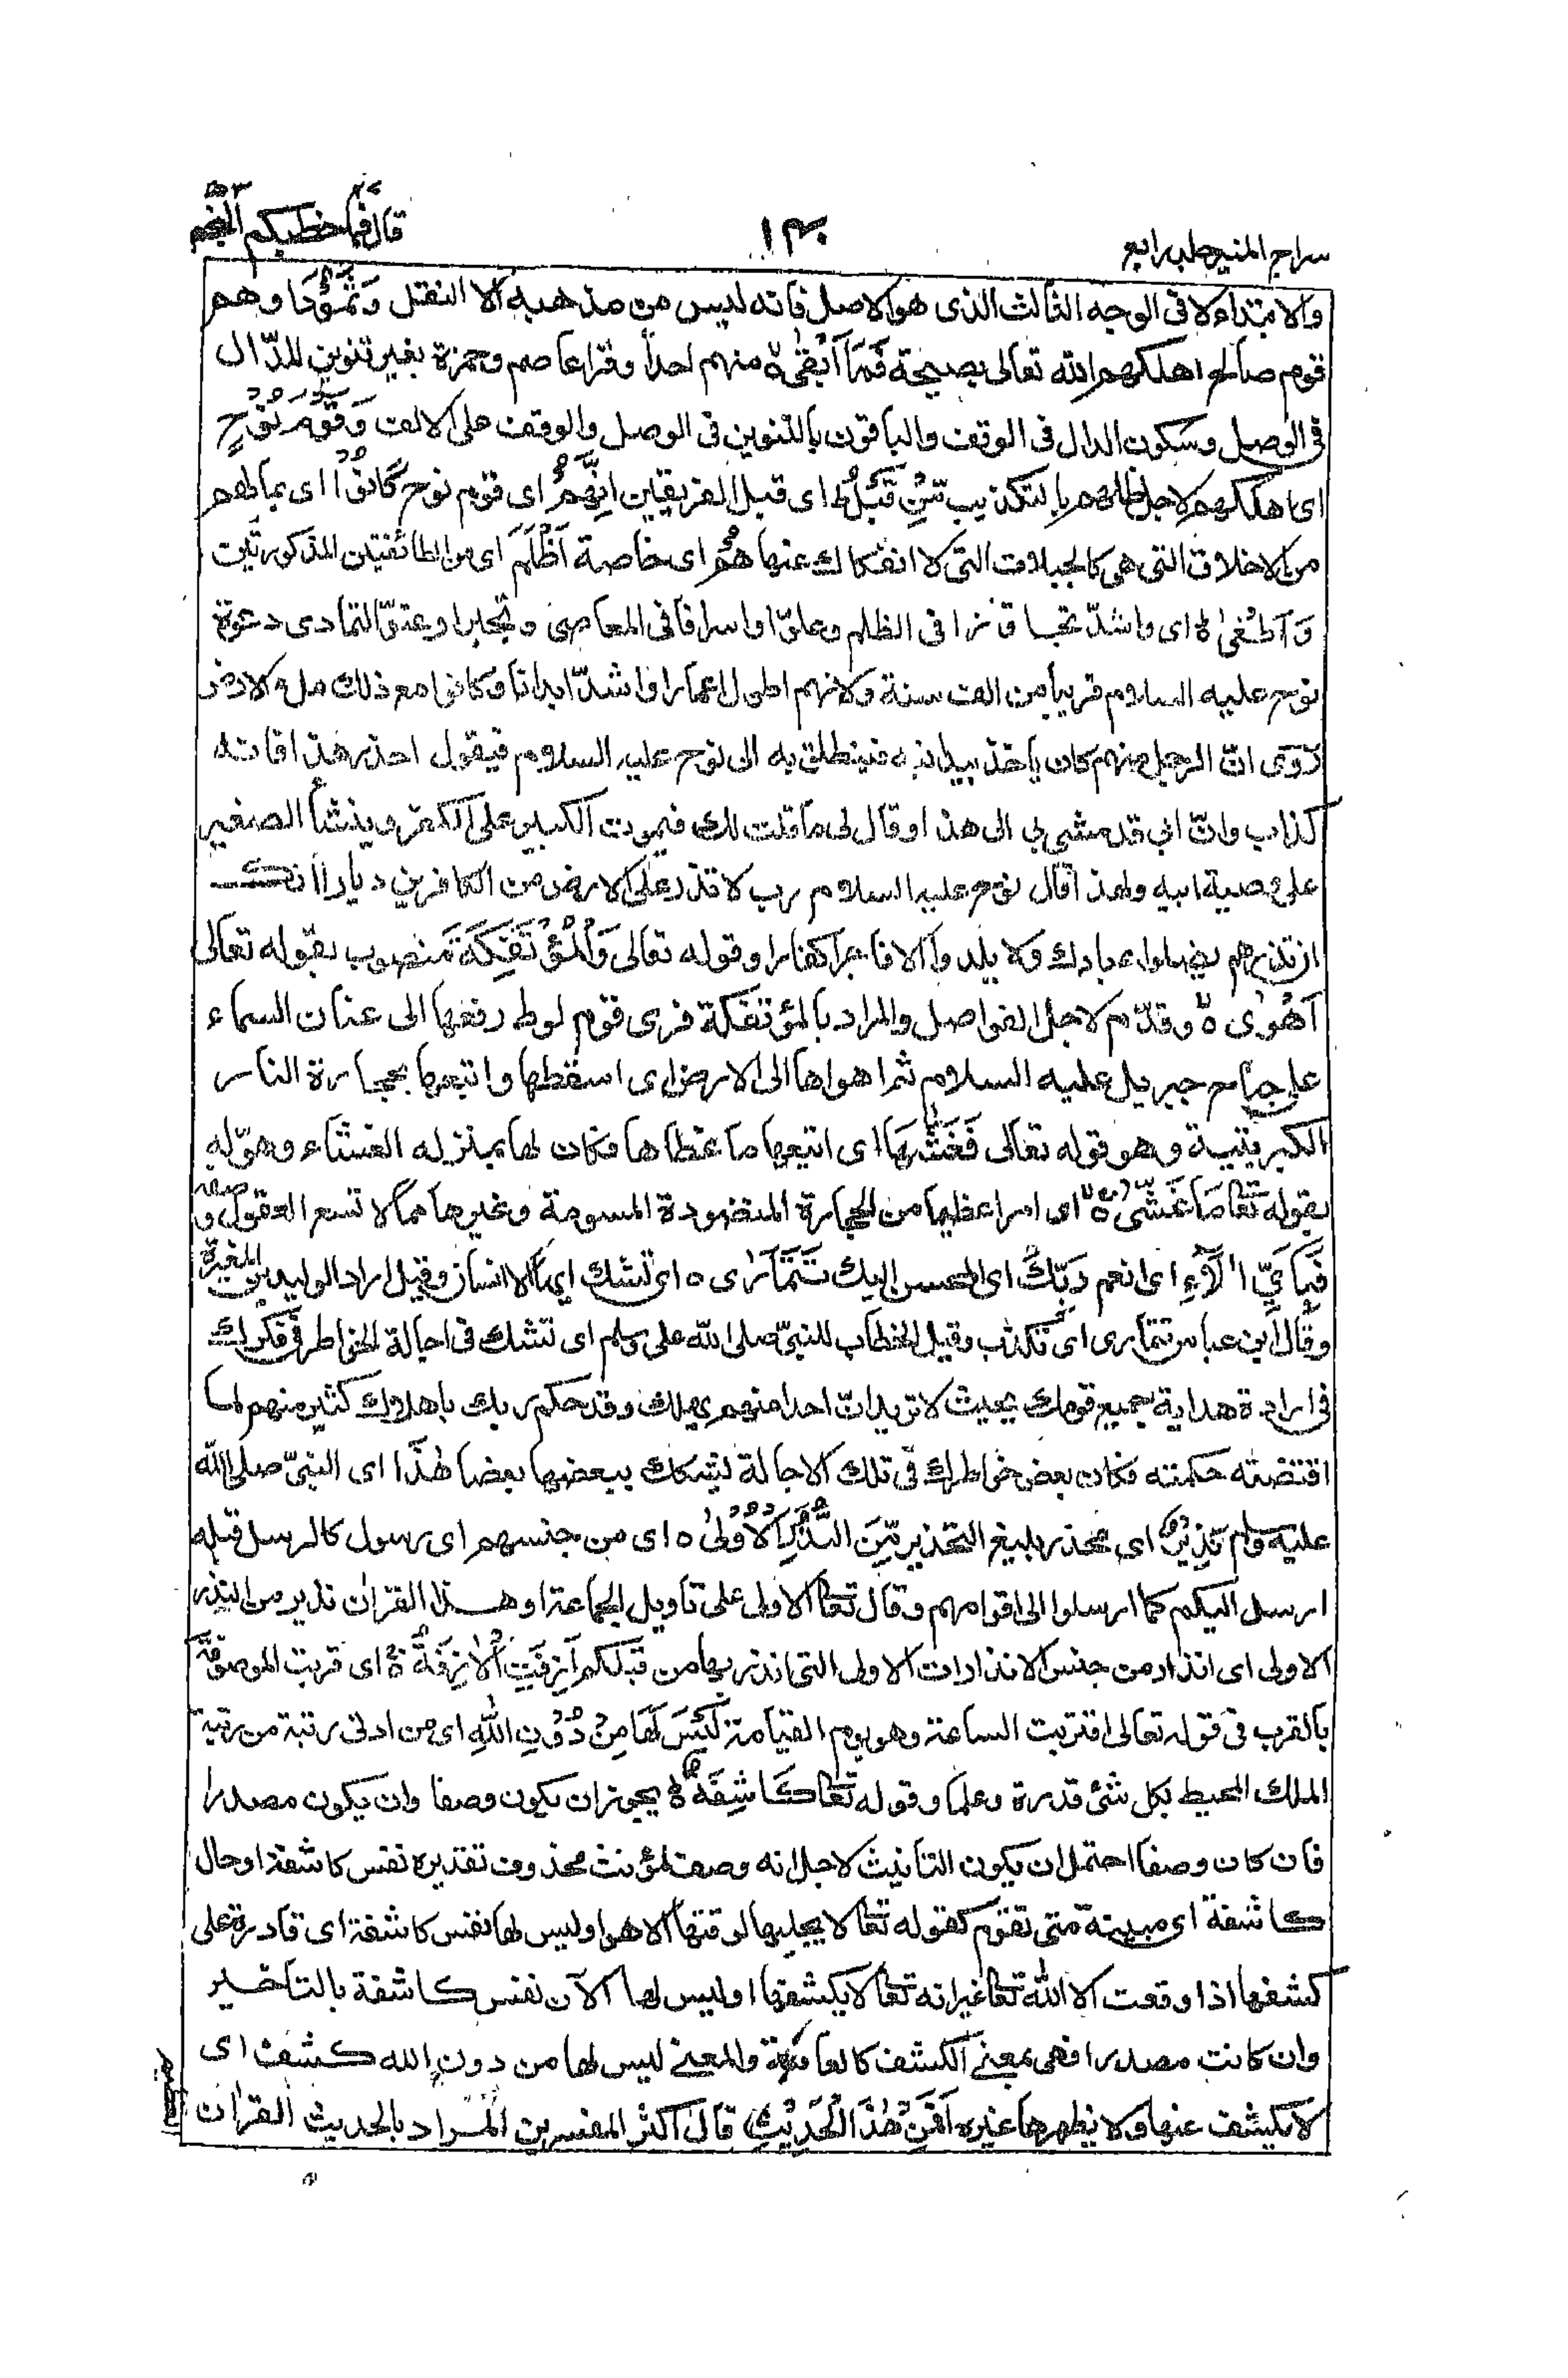 سراج المنير جلد رابع
١٣٠
قال فما خطبكم ٢٧ النجم ٥٣
والابتداء لا فى الوجه الثالث الذى هو الاصل فانه ليس من مذهبه الا النقل وَثَمُوۡدَا وهم
قوم صالح اهلكهم الله تعالى بصيحة فَمَآ اَبۡقٰىۙ‏ منهم احدا وقرا عاصم وحمزة بغير تنوين للدّال
فى الوصل وسكون الدال فى الوقف والباقون بالتنوين فى الوصل والوقف على الالف وَقَوۡمَ نُوۡحٍ
اى اهلكهم لاجل ظلمهم بالتكذيب مِّنۡ قَبۡلُ‌ؕ اى قبل الفريقين اِنَّهُمۡ اى قوم نوح كَانُوۡا اى بما لهم
من الاخلاق التى هى كالجبلات التى لا انفكاك عنها هُمۡ اى خاصة اَظۡلَمَ اى من الطائفتين المذكورتين
وَاَطۡغٰىؕ‏ اى واشدّ تجاوزا فى الظلم وعلوّا واسرافا فى المعاصى وتجبرا وعتوّا لتمادى دعوة
نوح عليه السلام قريبا من الف سنة ولانهم اطول اعمارا واشدّ ابدانا وكانوا مع ذلك ملء الارض
روى انّ الرجل منهم كان ياخذ بيد ابنه فينطلق به الى نوح عليه السلام فيقول احذر هذا فانه
كذاب وانّ ابى قد مشى بى الى هذا وقال لى ما قلت لك فيموت الكبير على الكفر وينشأ الصغير
على وصية ابيه ولهذا قال نوح عليه السلام رب لا تذر على الارض من الكافرين ديارا انك
ان تذرهم يضلوا عبادك ولا يلدوا الا فاجرا كفارا وقوله تعالى وَالۡمُؤۡتَفِكَةَ منصوب بقوله تعالى
اَهۡوٰىۙ‏ وقدّم لاجل الفواصل والمراد بالمؤتفكة قرى قوم لوط رفعها الى عنان السماء
على جناح جبريل عليه السلام ثم اهواها الى الارض اى اسقطها واتبعها بحجارة النار
الكبريتية وهو قوله تعالى فَغَشّٰٮهَا اى اتبعها ما غطاها فكان لها بمنزلة الغشاء وهوّله
بقوله تعالى مَا غَشّٰى‌ۚ‏ اى امرا عظيما من الحجارة المنضودة المسومة وغيرها مما لا تسع العقول وصفه
فَبِاَىِّ اٰلَاۤءِ اى انعم رَبِّكَ اى المحسن اليك تَتَمَارٰى‏ اى تشك ايها الانسان وقيل اراد الوليد بن المغيرة
وقال ابن عباس تتمارى اى تكذب وقيل الخطاب للنبىّ صلى الله عليه وسلم اى تشك فى اجالة الخواطر فى فكرك
فى ارادة هداية جميع قومك بحيث لا تريد انّ احدا منهم يهلك وقد حكم ربك باهلاك كثير منهم لما
اقتضته حكمته فكان بعض خواطرك فى تلك الاجالة تشكك ببعضها بعضا هٰذَا اى النبىّ صلى الله
عليه وسلم نَذِيۡرٌ اى محذر بليغ التحذير مِّنَ النُّذُرِ الۡاُوۡلٰى‏ اى من جنسهم اى رسول كالرسل قبله
ارسل اليكم كما ارسلوا الى اقوامهم وقال تعالى الاولى على تاويل الجماعة او هذا القران نذير من النذر
الاولى اى انذار من جنس الانذارات الاولى التى انذر بها من قبلكم اَزِفَتِ الۡاٰزِفَةُ‌ۚ‏ اى قربت الموصوفة
بالقرب فى قوله تعالى اقتربت الساعة وهو يوم القيامة لَيۡسَ لَهَا مِنۡ دُوۡنِ اللّٰهِ اى من ادنى رتبة من رتبة
الملك المحيط بكل شئ قدرة وعلما وقوله تعالى كَاشِفَةٌ ؕ‏ يجوز ان يكون وصفا وان يكون مصدرا
فان كان وصفا احتمل ان يكون التانيث لاجل انه وصف لمؤنث محذوف تقديره نفس كاشفة او حال
كاشفة اى مبينة متى تقوم كقوله تعالى لا يجليها لوقتها الا هو او ليس لها نفس كاشفة اى قادرة على
كشفها اذا وقعت الا الله تعالى غير انه تعالى لا يكشفها او ليس لها الآن نفس كاشفة بالتاخير
وان كانت مصدرا فهى بمعنى الكشف كالعافية والمعنى ليس لها من دون الله كشف اى
لا يكشف عنها ولا يظهرها غيره اَفَمِنۡ هٰذَا الۡحَدِيۡثِ قال اكثر المفسرين المراد بالحديث القران
العظيم